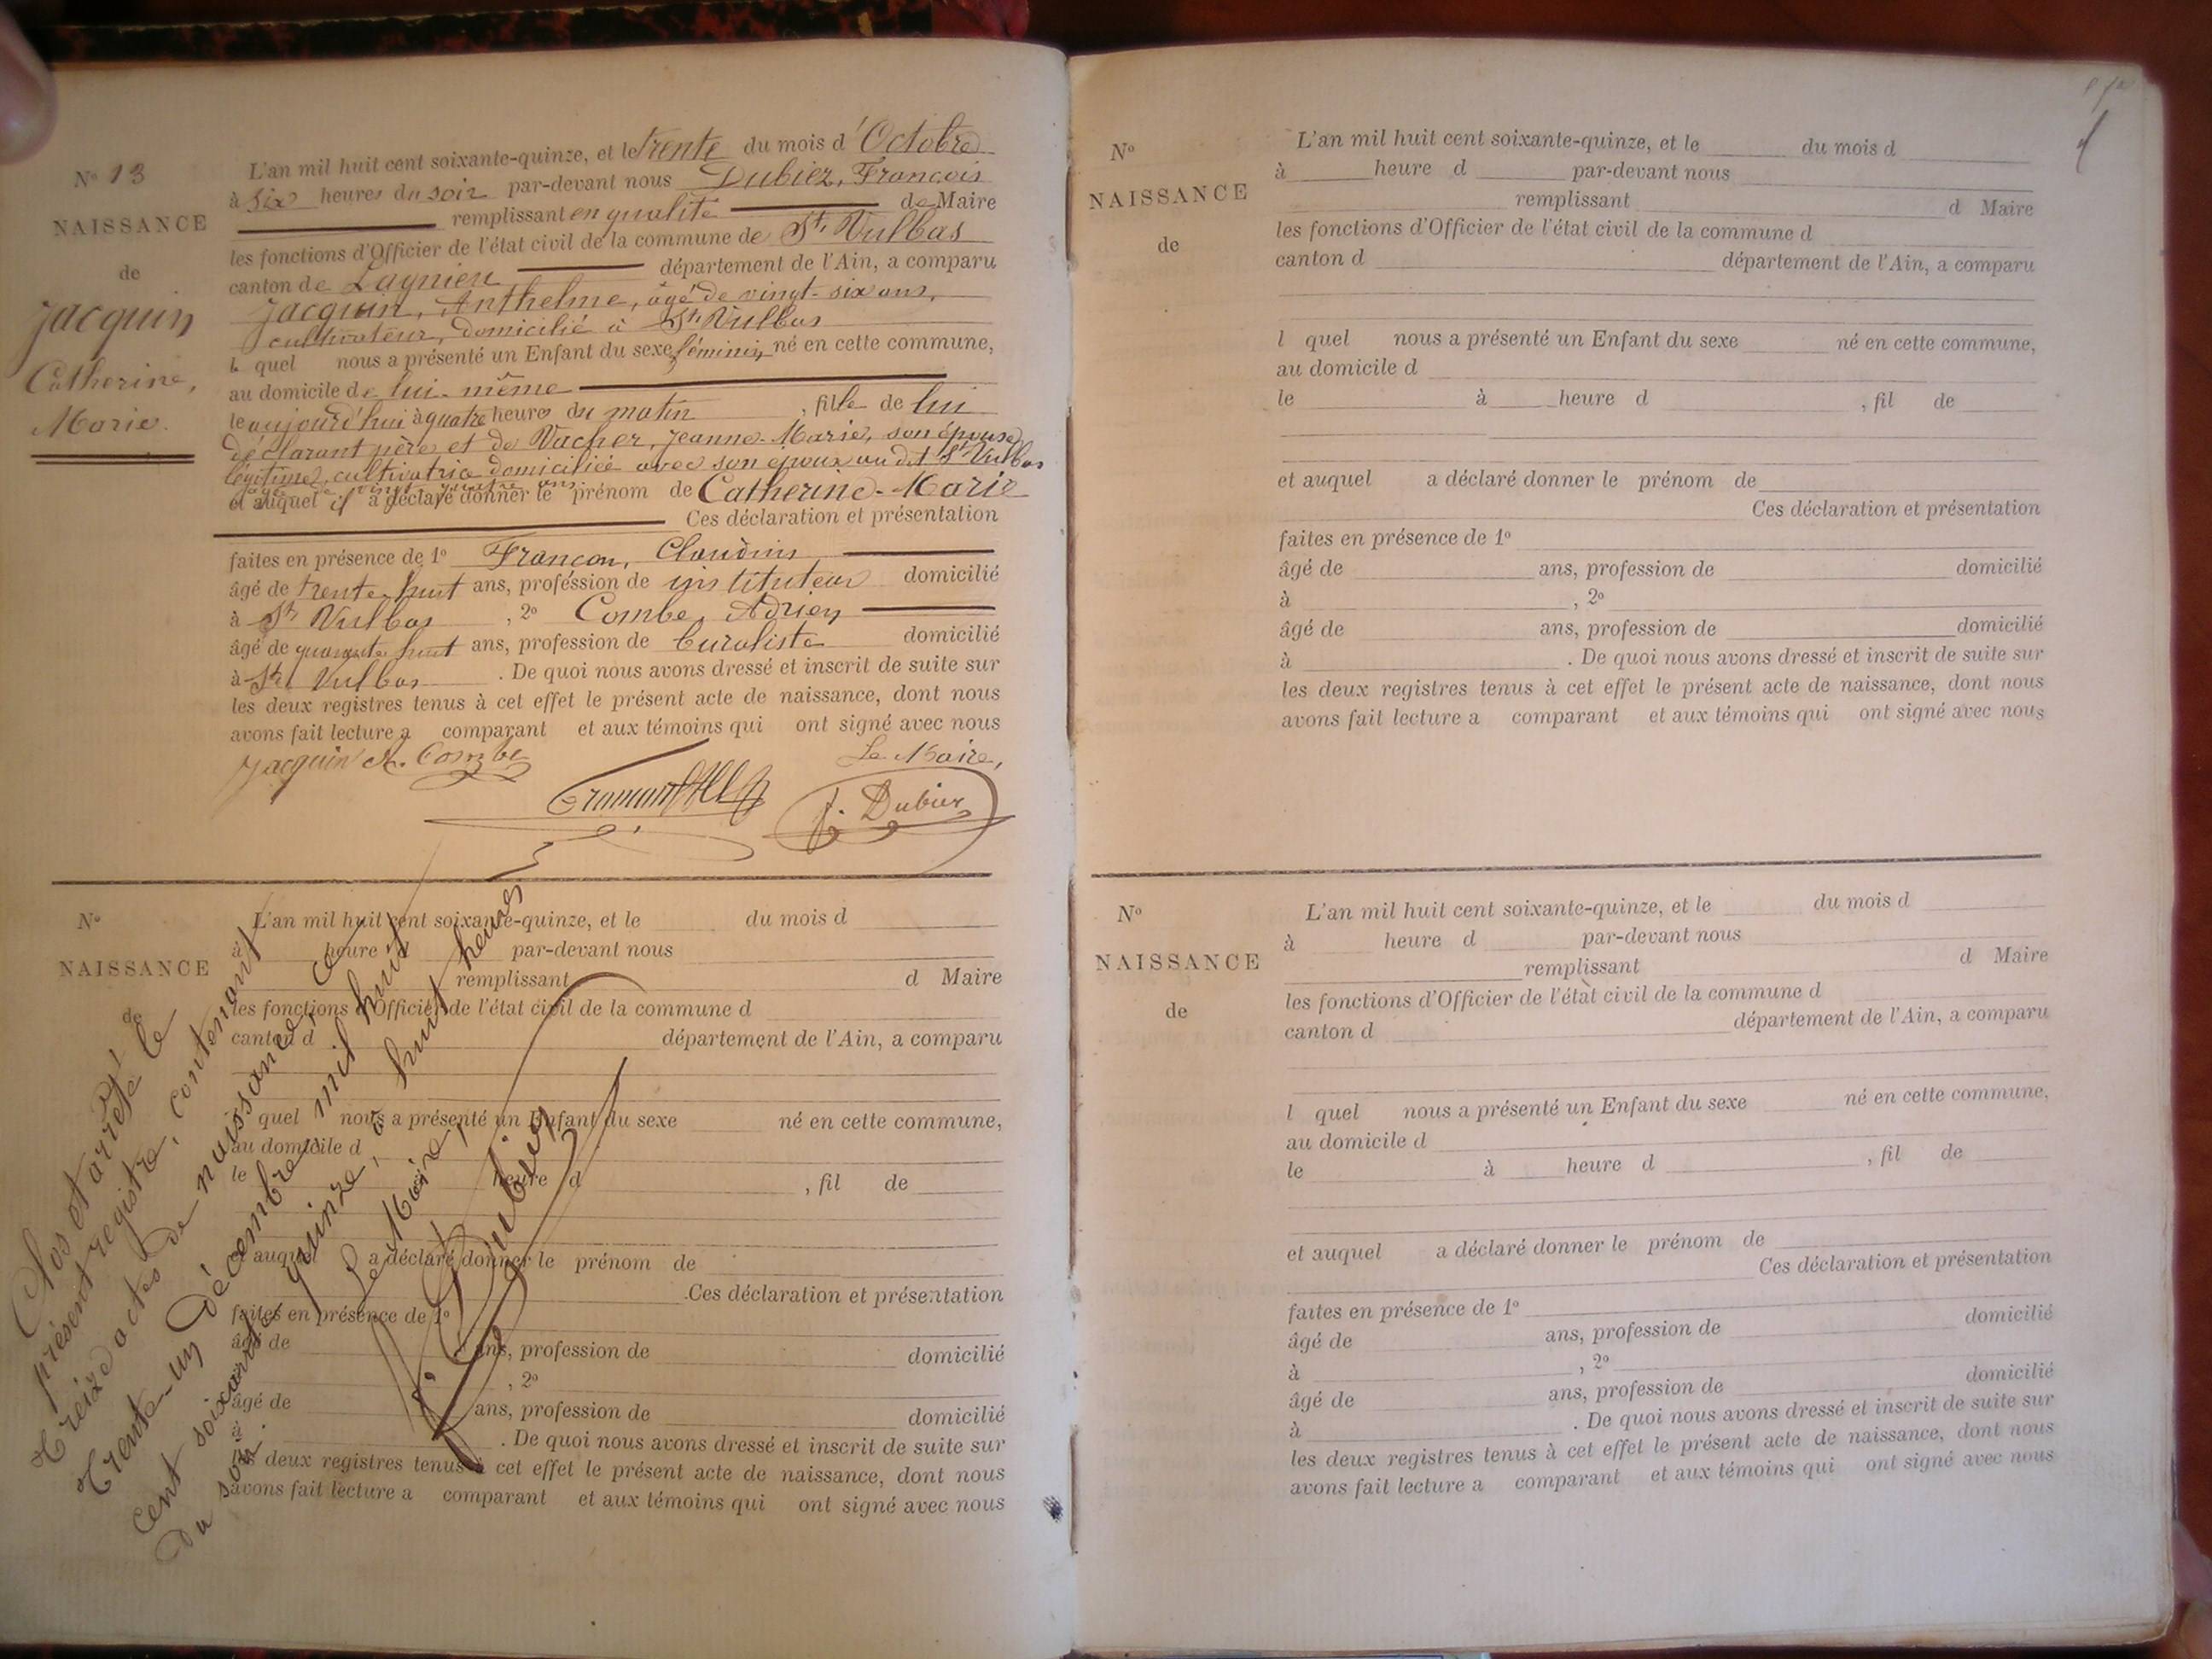 N° 13
NAISSANCE
de
Jacquin
Catherine,
Marie.
L'an mil huit cent soixante-quinze, et le trente du mois d'Octobre
à six heures du soir par-devant nous Dubiez, François
remplissant en qualité de Maire
les fonctions d'Officier de l'état civil de la commune de St Vulbas
canton de Lagnieu département de l'Ain, a comparu
Jacquin, Anthelme, âgé de vingt-six ans,
cultivateur, domicilié à St Vulbas
le quel nous a présenté un Enfant du sexe féminin né en cette commune,
au domicile de lui-même
le aujourd'hui à quatre heures du matin, fille de lui
déclarant père et de Vacher, Jeanne-Marie, son épouse
légitime, cultivatrice domiciliée avec son époux au dit St Vulbas
âgée de vingt quatre ans
et auquel il a déclaré donner le prénom de Catherine-Marie
Ces déclaration et présentation
faites en présence de 1° Françon, Claudius
âgé de trente huit ans, profession de instituteur domicilié
à St Vulbas, 2° Combe, Adrien
âgé de quarante huit ans, profession de buraliste domicilié
à St Vulbas. De quoi nous avons dressé et inscrit de suite sur
les deux registres tenus à cet effet le présent acte de naissance, dont nous
avons fait lecture a comparant et aux témoins qui ont signé avec nous
Jacquin A. Combe Le Maire,
F. Dubiez
N°
NAISSANCE
de
L'an mil huit cent soixante-quinze, et le du mois d
à heure d par-devant nous
remplissant d Maire
les fonctions d'Officier de l'état civil de la commune d
canton d département de l'Ain, a comparu
quel nous a présenté un Enfant du sexe né en cette commune,
au domicile d
le heure d , fil de
et auquel a déclaré donner le prénom de
Ces déclaration et présentation
faites en présence de 1°
âgé de ans, profession de domicilié
, 2°
âgé de ans, profession de domicilié
à . De quoi nous avons dressé et inscrit de suite sur
les deux registres tenus à cet effet le présent acte de naissance, dont nous
avons fait lecture a comparant et aux témoins qui ont signé avec nous
Clos et arrêté le
présent registre, contenant
Treize actes de naissance, ce
Trente-un Décembre mil huit
cent soixante quinze, à huit heures
du soir. Le Maire,
F. Dubiez
N°
NAISSANCE
de
L'an mil huit cent soixante-quinze, et le du mois d
à heure d par-devant nous
remplissant d Maire
les fonctions d'Officier de l'état civil de la commune d
canton d département de l'Ain, a comparu
l quel nous a présenté un Enfant du sexe né en cette commune,
au domicile d
le à heure d , fil de
et auquel a déclaré donner le prénom de
Ces déclaration et présentation
faites en présence de 1°
âgé de ans, profession de domicilié
à , 2°
âgé de ans, profession de domicilié
à . De quoi nous avons dressé et inscrit de suite sur
les deux registres tenus à cet effet le présent acte de naissance, dont nous
avons fait lecture a comparant et aux témoins qui ont signé avec nous
N°
NAISSANCE
de
L'an mil huit cent soixante-quinze, et le du mois d
à heure d par-devant nous
remplissant d Maire
les fonctions d'Officier de l'état civil de la commune d
canton d département de l'Ain, a comparu
l quel nous a présenté un Enfant du sexe né en cette commune,
au domicile d
le à heure d , fil de
et auquel a déclaré donner le prénom de
Ces déclaration et présentation
faites en présence de 1°
âgé de ans, profession de domicilié
à , 2°
âgé de ans, profession de domicilié
à . De quoi nous avons dressé et inscrit de suite sur
les deux registres tenus à cet effet le présent acte de naissance, dont nous
avons fait lecture a comparant et aux témoins qui ont signé avec nous